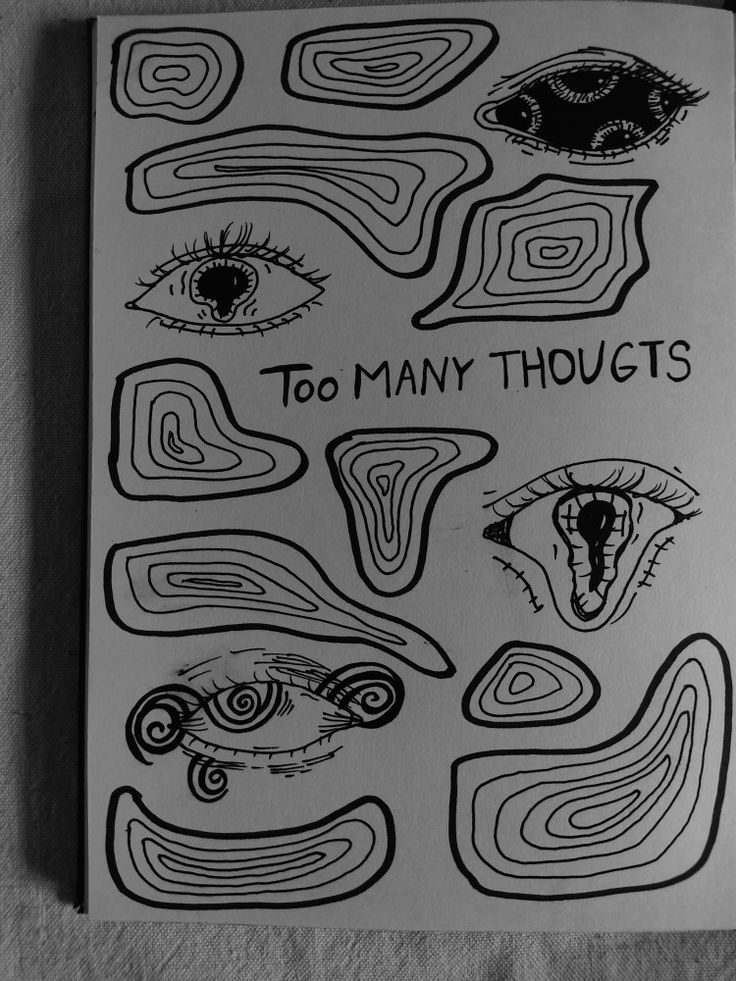 TOO MANY THOUGTS